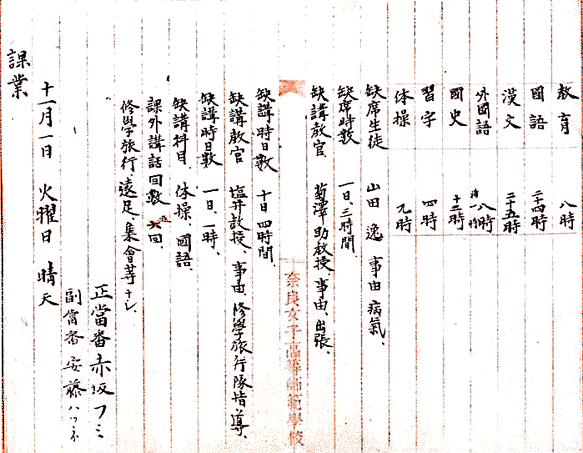 教育 八時
國語 二十四時
漢文 二十五時
外國語 八時
國史 十二時
習字 四時
体操 九時
缺席生徒 山田 逸 事由 病氣、
缺席時数 一日、三時間、
缺講教官 菊澤助教授、事由、出張、
奈良女子高等師範學校
缺講時日數 十日四時間、
缺講教官 塩井教授、事由、修學旅行隊指導、
缺講時日數 一日、一時、
缺講科目、体操、國語、
課外講話回数 回、
修學旅行遠足集會等ナシ、
正當番 赤坂フミ
副當番 安藤ハツネ
十一月一日 火曜日 晴天
課業